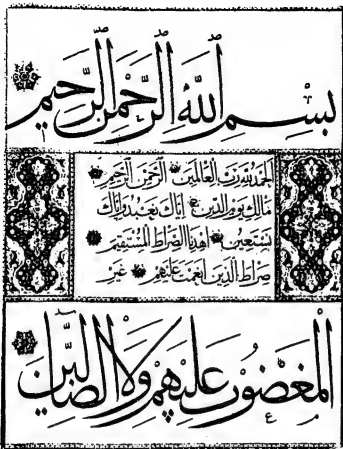 بِسْمِ ٱللَّهِ ٱلرَّحْمَنِ ٱلرَّحِيمِ
الْحَمْدُ لِلَّهِ رَبِّ الْعَالَمِينَ الرَّحْمَنِ الرَّحِيمِ
مَالِكِ يَوْمِ الدِّينِ إِيَّاكَ نَعْبُدُ وَإِيَّاكَ
نَسْتَعِينُ اهْدِنَا الصِّرَاطَ الْمُسْتَقِيمَ
صِرَاطَ الَّذِينَ أَنْعَمْتَ عَلَيْهِمْ غَيْرِ
الْمَغْضُوبِ عَلَيْهِمْ وَلَا الضَّالِّينَ